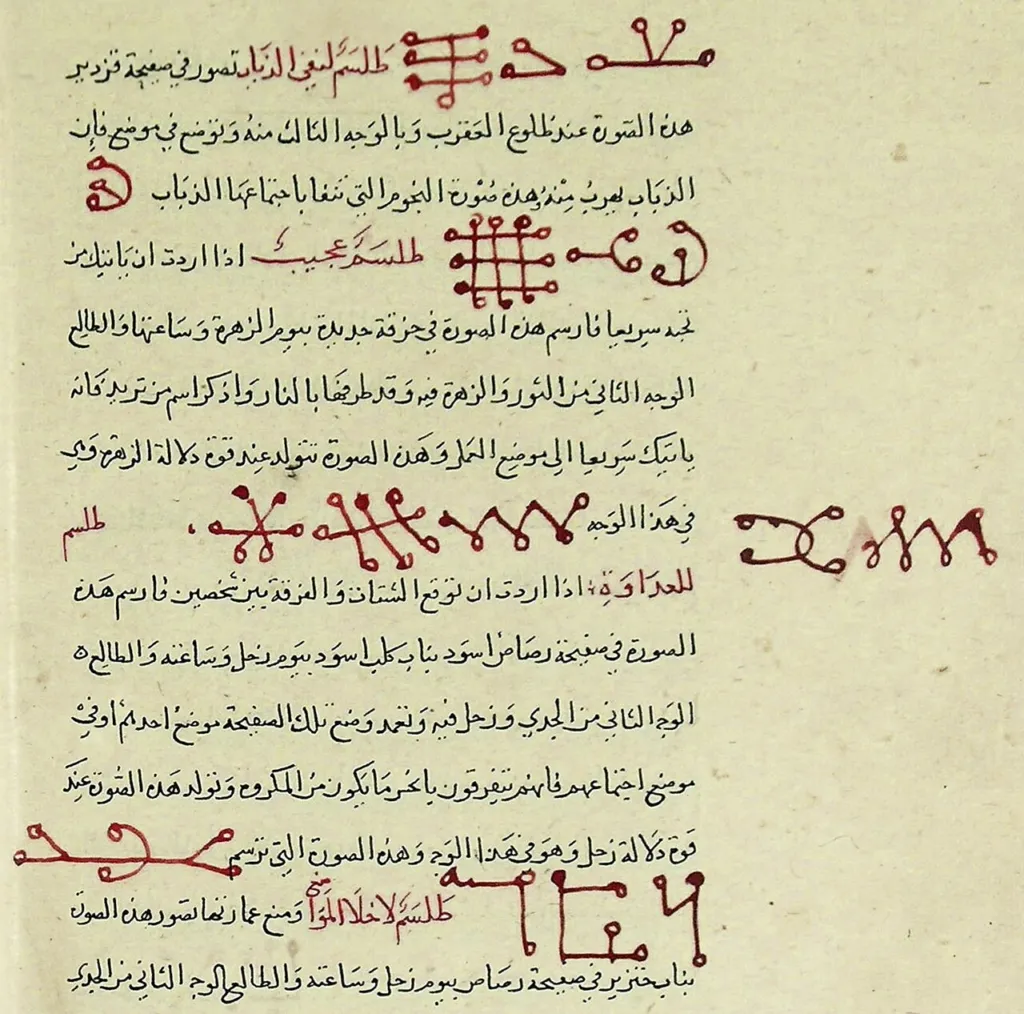 طلسم لنفي الذباب تصور في صفيحة قزدير
هذه الصورة عند طلوع العقرب وبالوجه الثالث منه وتوضع في موضع فإن
الذباب يهرب منه وهذه صورة النجوم التي تنفا باجتماعها الذباب
طلسم عجيب اذا اردت ان ياتيك من
تحبه سريعا فارسم هذه الصورة في خرقة جديدة بيوم الزهرة وساعتها والطالع
الوجه الثاني من الثور والزهرة فيه وقد طرفها بالنار واذكر اسم من تريد فانه
ياتيك سريعا الى موضع العمل وهذه الصورة تتولد عند قوة دلالة الزهرة وهي
في هذا الوجه
طلسم
للعداوة اذا اردت ان توقع الشتات والفرقة بين شخصين فارسم هذه
الصورة في صفيحة رصاص اسود بناب كلب اسود بيوم زحل وساعته والطالع
الوجه الثاني من الجدي وزحل فيه وتعمد وضع تلك الصفيحة موضع احدهم أو في
موضع اجتماعهم فانهم يتفرقون با ما يكون من المكروه وتولد هذه الصورة عند
قوة دلالة زحل وهو في هذا الوجه وهذه الصورة التي ترسم
طلسم لاخلا المواضع ومنع عمارتها تصور هذه الصورة
بناب خنزير في صفيحة رصاص بيوم زحل وساعته والطالع الوجه الثاني من الجدي